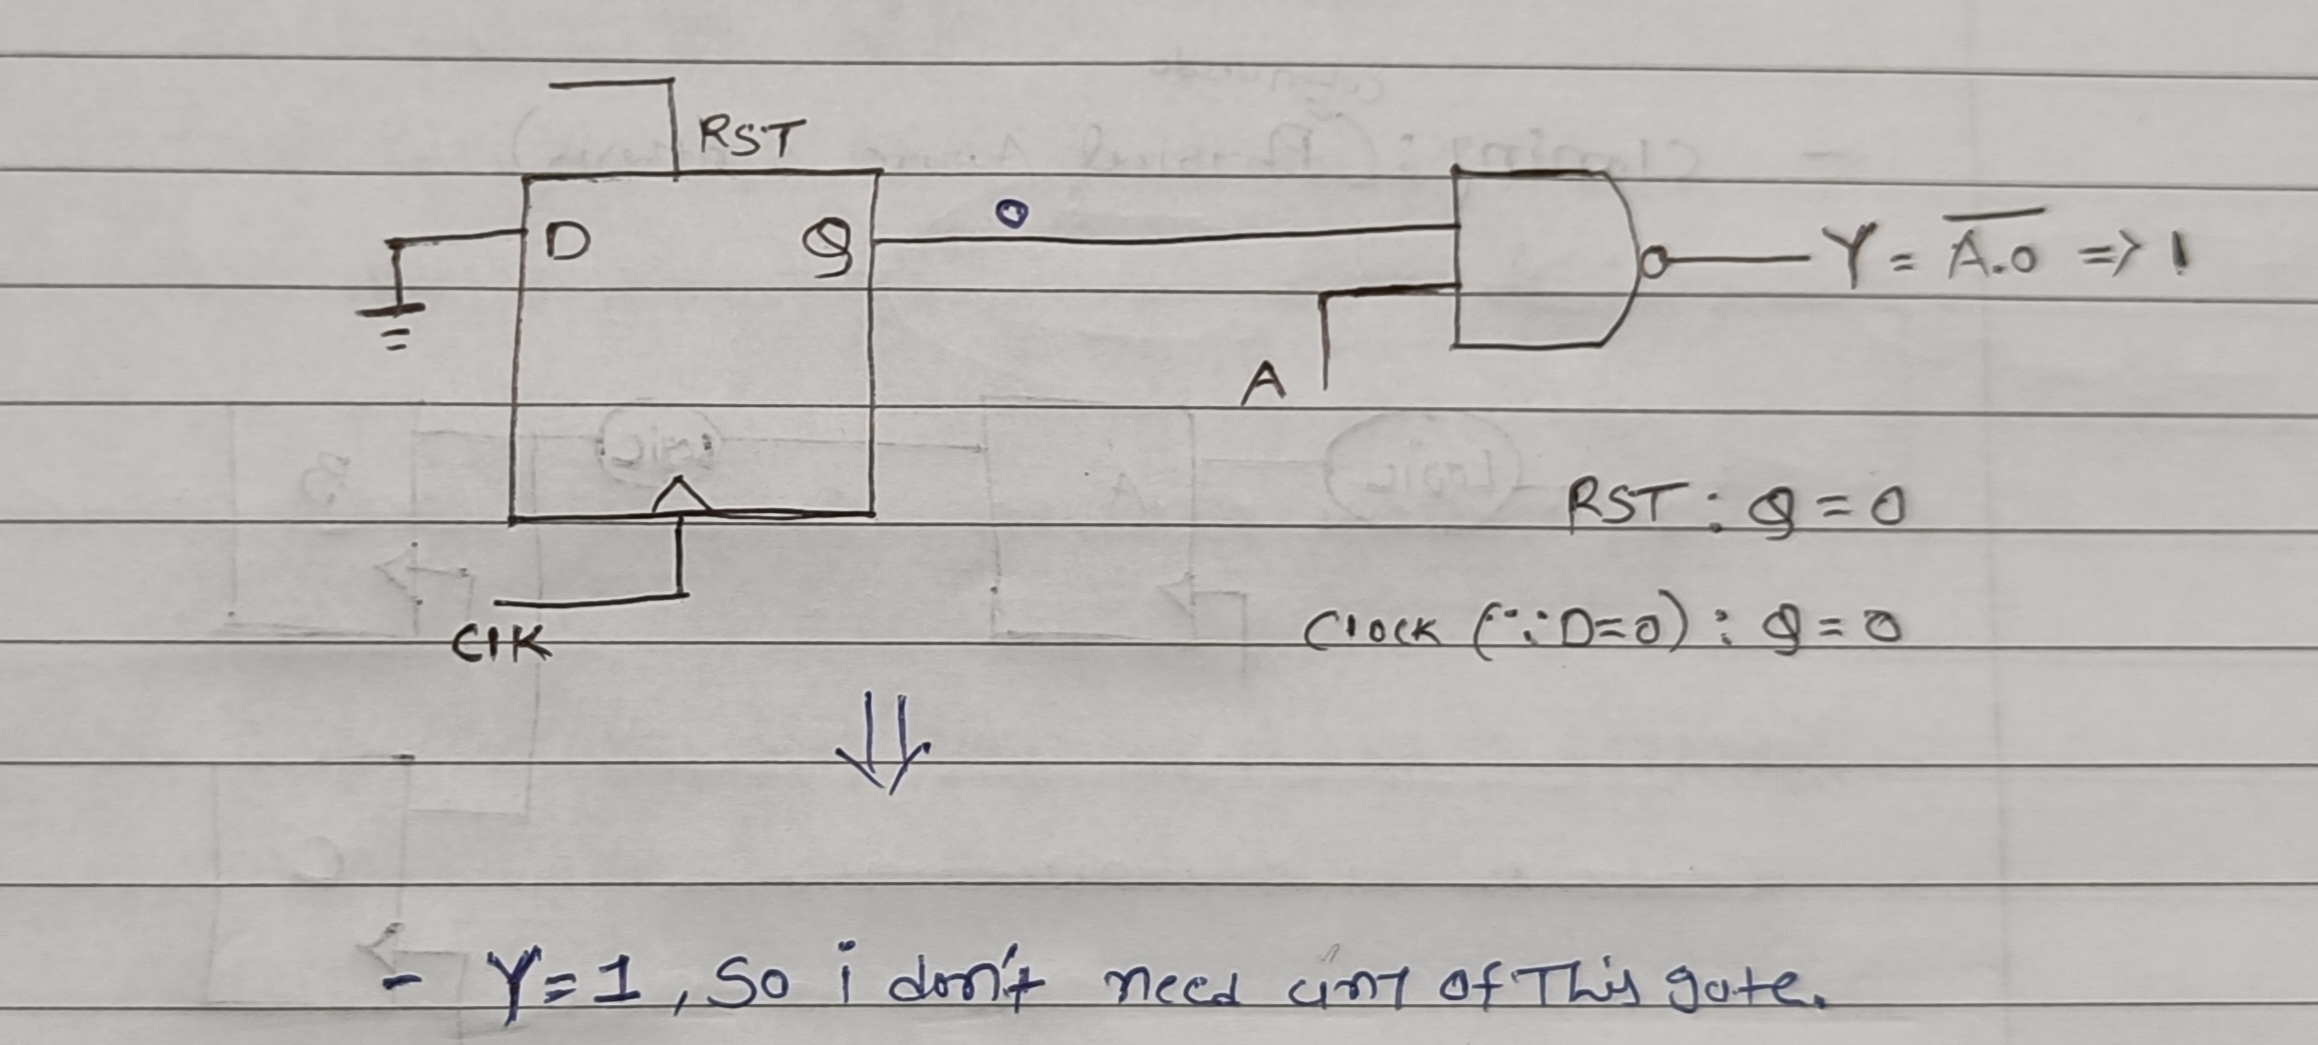 RST
D Q 0
Y = \overline{A.0} => 1
A
RST : Q = 0
Clock (∵ D=0) : Q = 0
ClK
⇓
- Y=1, So i don't need any of This gate.